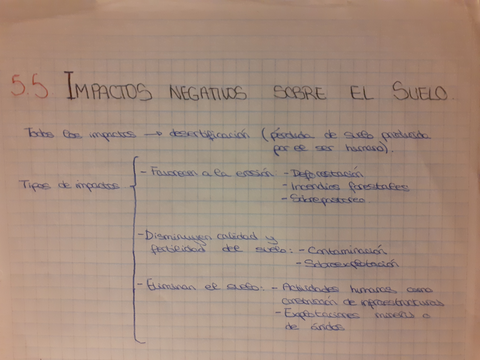 5.5 IMPACTOS NEGATIVOS SOBRE EL SUELO.
Todos los impactos → desertificación (pérdida de suelo producida
por el ser humano).
Tipos de impactos
- Favorecen a la erosión: - Deforestación
- Incendios forestales
- Sobrepastoreo
- Disminuyen calidad y
fertilidad del suelo: - Contaminación
- Sobreexplotación
- Eliminan el suelo: - Actividades humanas como
construcción de infraestructuras
- Explotaciones mineras o
de áridos